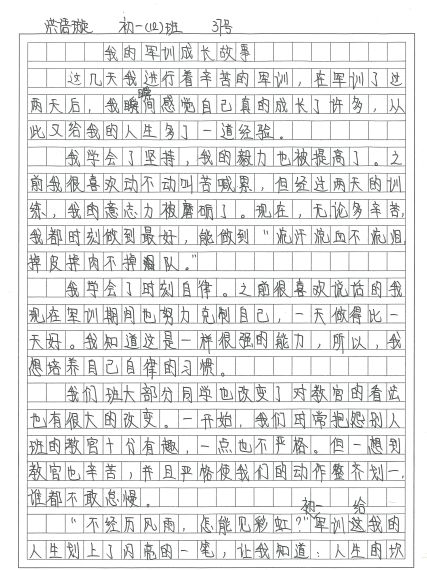 洪语璇 初一(12)班 37号
我的军训成长故事
这几天我进行着辛苦的军训，在军训了这
两天后，我瞬间感觉自己真的成长了许多，从
此又给我的人生多了一道经验。
我学会了坚持，我的毅力也被提高了。之
前我很喜欢动不动叫苦喊累，但经过两天的训
练，我的意志力被磨砺了。现在，无论多辛苦，
我都时刻做到最好，能做到“流汗流血不流泪，
掉皮掉肉不掉队。”
我学会了时刻自律。之前很喜欢说话的我
现在军训期间也努力克制自己，一天做得比一
天好。我知道这是一样很强的能力，所以，我
想培养自己自律的习惯。
我们班大部分同学也改变了对教官的看法
也有很大的改变。一开始，我们时常抱怨别人
班的教官十分有趣，一点也不严格。但一想到
教官也辛苦，并且严格使我们的动作整齐划一，
谁都不敢怠慢。
初一 给
“不经历风雨，怎能见彩虹？”军训这我的
人生划上了闪亮的一笔，让我知道：人生的坎